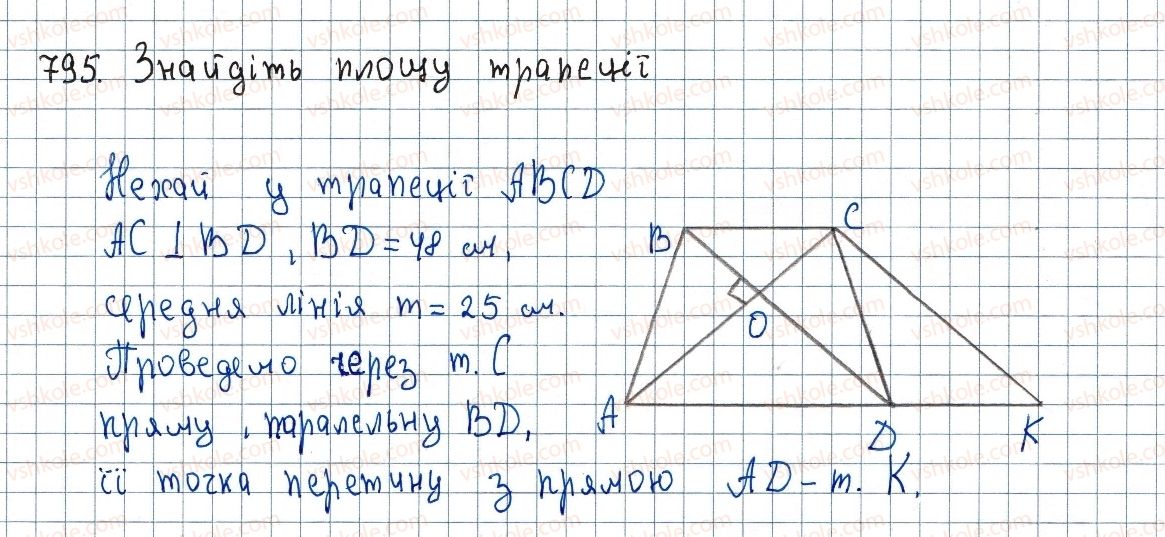 795. Знайдіть площу трапеції
Нехай у трапеції ABCD
AC ⊥ BD, BD = 48 см,
середня лінія m = 25 см.
Проведемо через т. C
пряму, паралельну BD,
її точка перетину з прямою AD – т. K.
B
C
O
A
D
K
vshkole.com